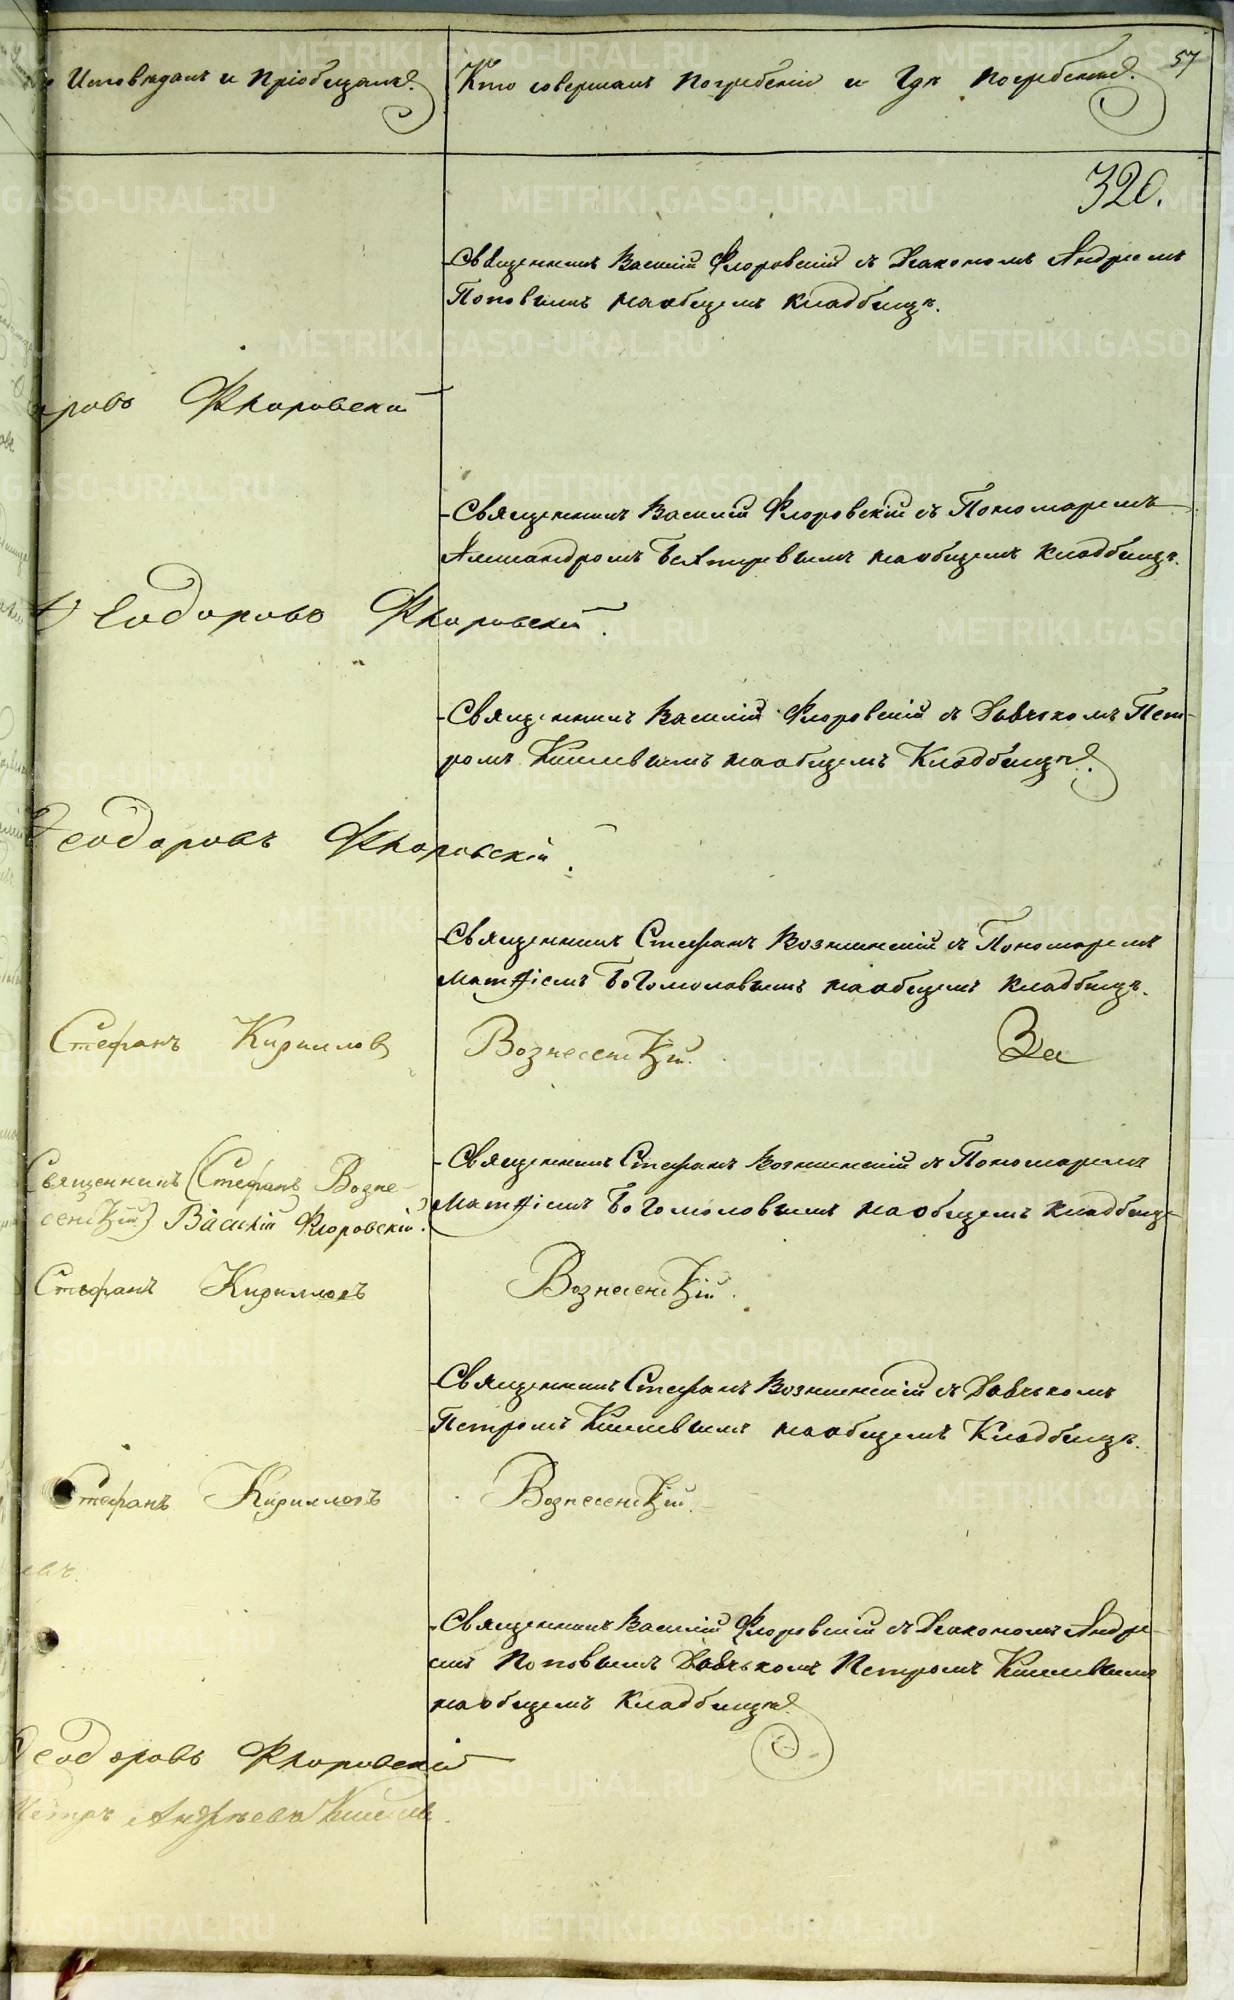 Исповѣдалъ и Пріобщалъ.
Кто совершалъ Погребеніе и Гдѣ Погребены.
57
320.
Священникъ Василій Флоровскій съ Діакономъ Андреемъ
Поповымъ на общемъ кладбищѣ.
Флоровскій
Священникъ Василій Флоровскій съ Пономаремъ
Александромъ на общемъ кладбищѣ.
Ѳеодоровъ Флоровскій.
Священникъ Василій Флоровскій съ Дьячкомъ Пет-
ромъ Киселевымъ на общемъ Кладбищѣ.
Ѳеодоровъ Флоровскій.
Священникъ Стефанъ Вознесенскій съ Пономаремъ
Матѳіемъ Богомоловымъ на общемъ кладбищѣ.
Стефанъ Кирилловъ Вознесенскій. За
Священникъ Стефанъ Вознесенскій съ Пономаремъ
Матѳіемъ Богомоловымъ на общемъ кладбищѣ
Священникъ (Стефанъ Возне-
сенскій) Василій Флоровскій.
Стефанъ Кирилловъ Вознесенскій.
Священникъ Стефанъ Вознесенскій съ Дьячкомъ
Петромъ Киселевымъ на общемъ Кладбищѣ.
Стефанъ Кирилловъ Вознесенскій.
Священникъ Василій Флоровскій съ Діакономъ Андре-
емъ Поповымъ Дьячкомъ Петромъ Киселевымъ
на общемъ кладбищѣ.
Ѳеодоровъ Флоровскій
Петръ Андреевъ Киселевъ.
METRIKI.GASO-URAL.RU